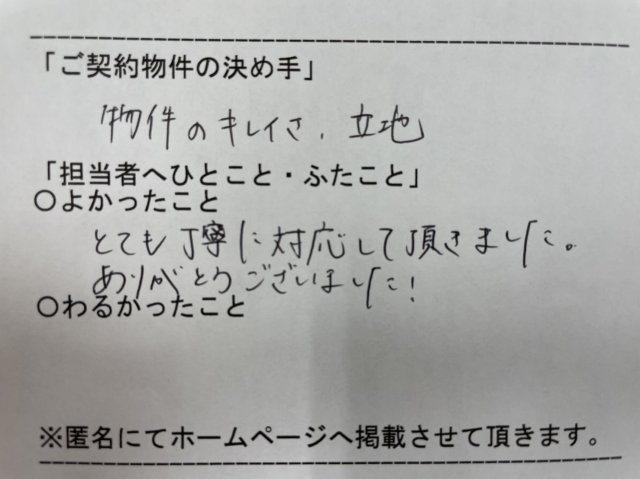 「ご契約物件の決め手」
物件のキレイさ、立地
「担当者へひとこと・ふたこと」
○よかったこと
とても丁寧に対応して頂きました。
ありがとうございました!
○わるかったこと
※匿名にてホームページへ掲載させて頂きます。